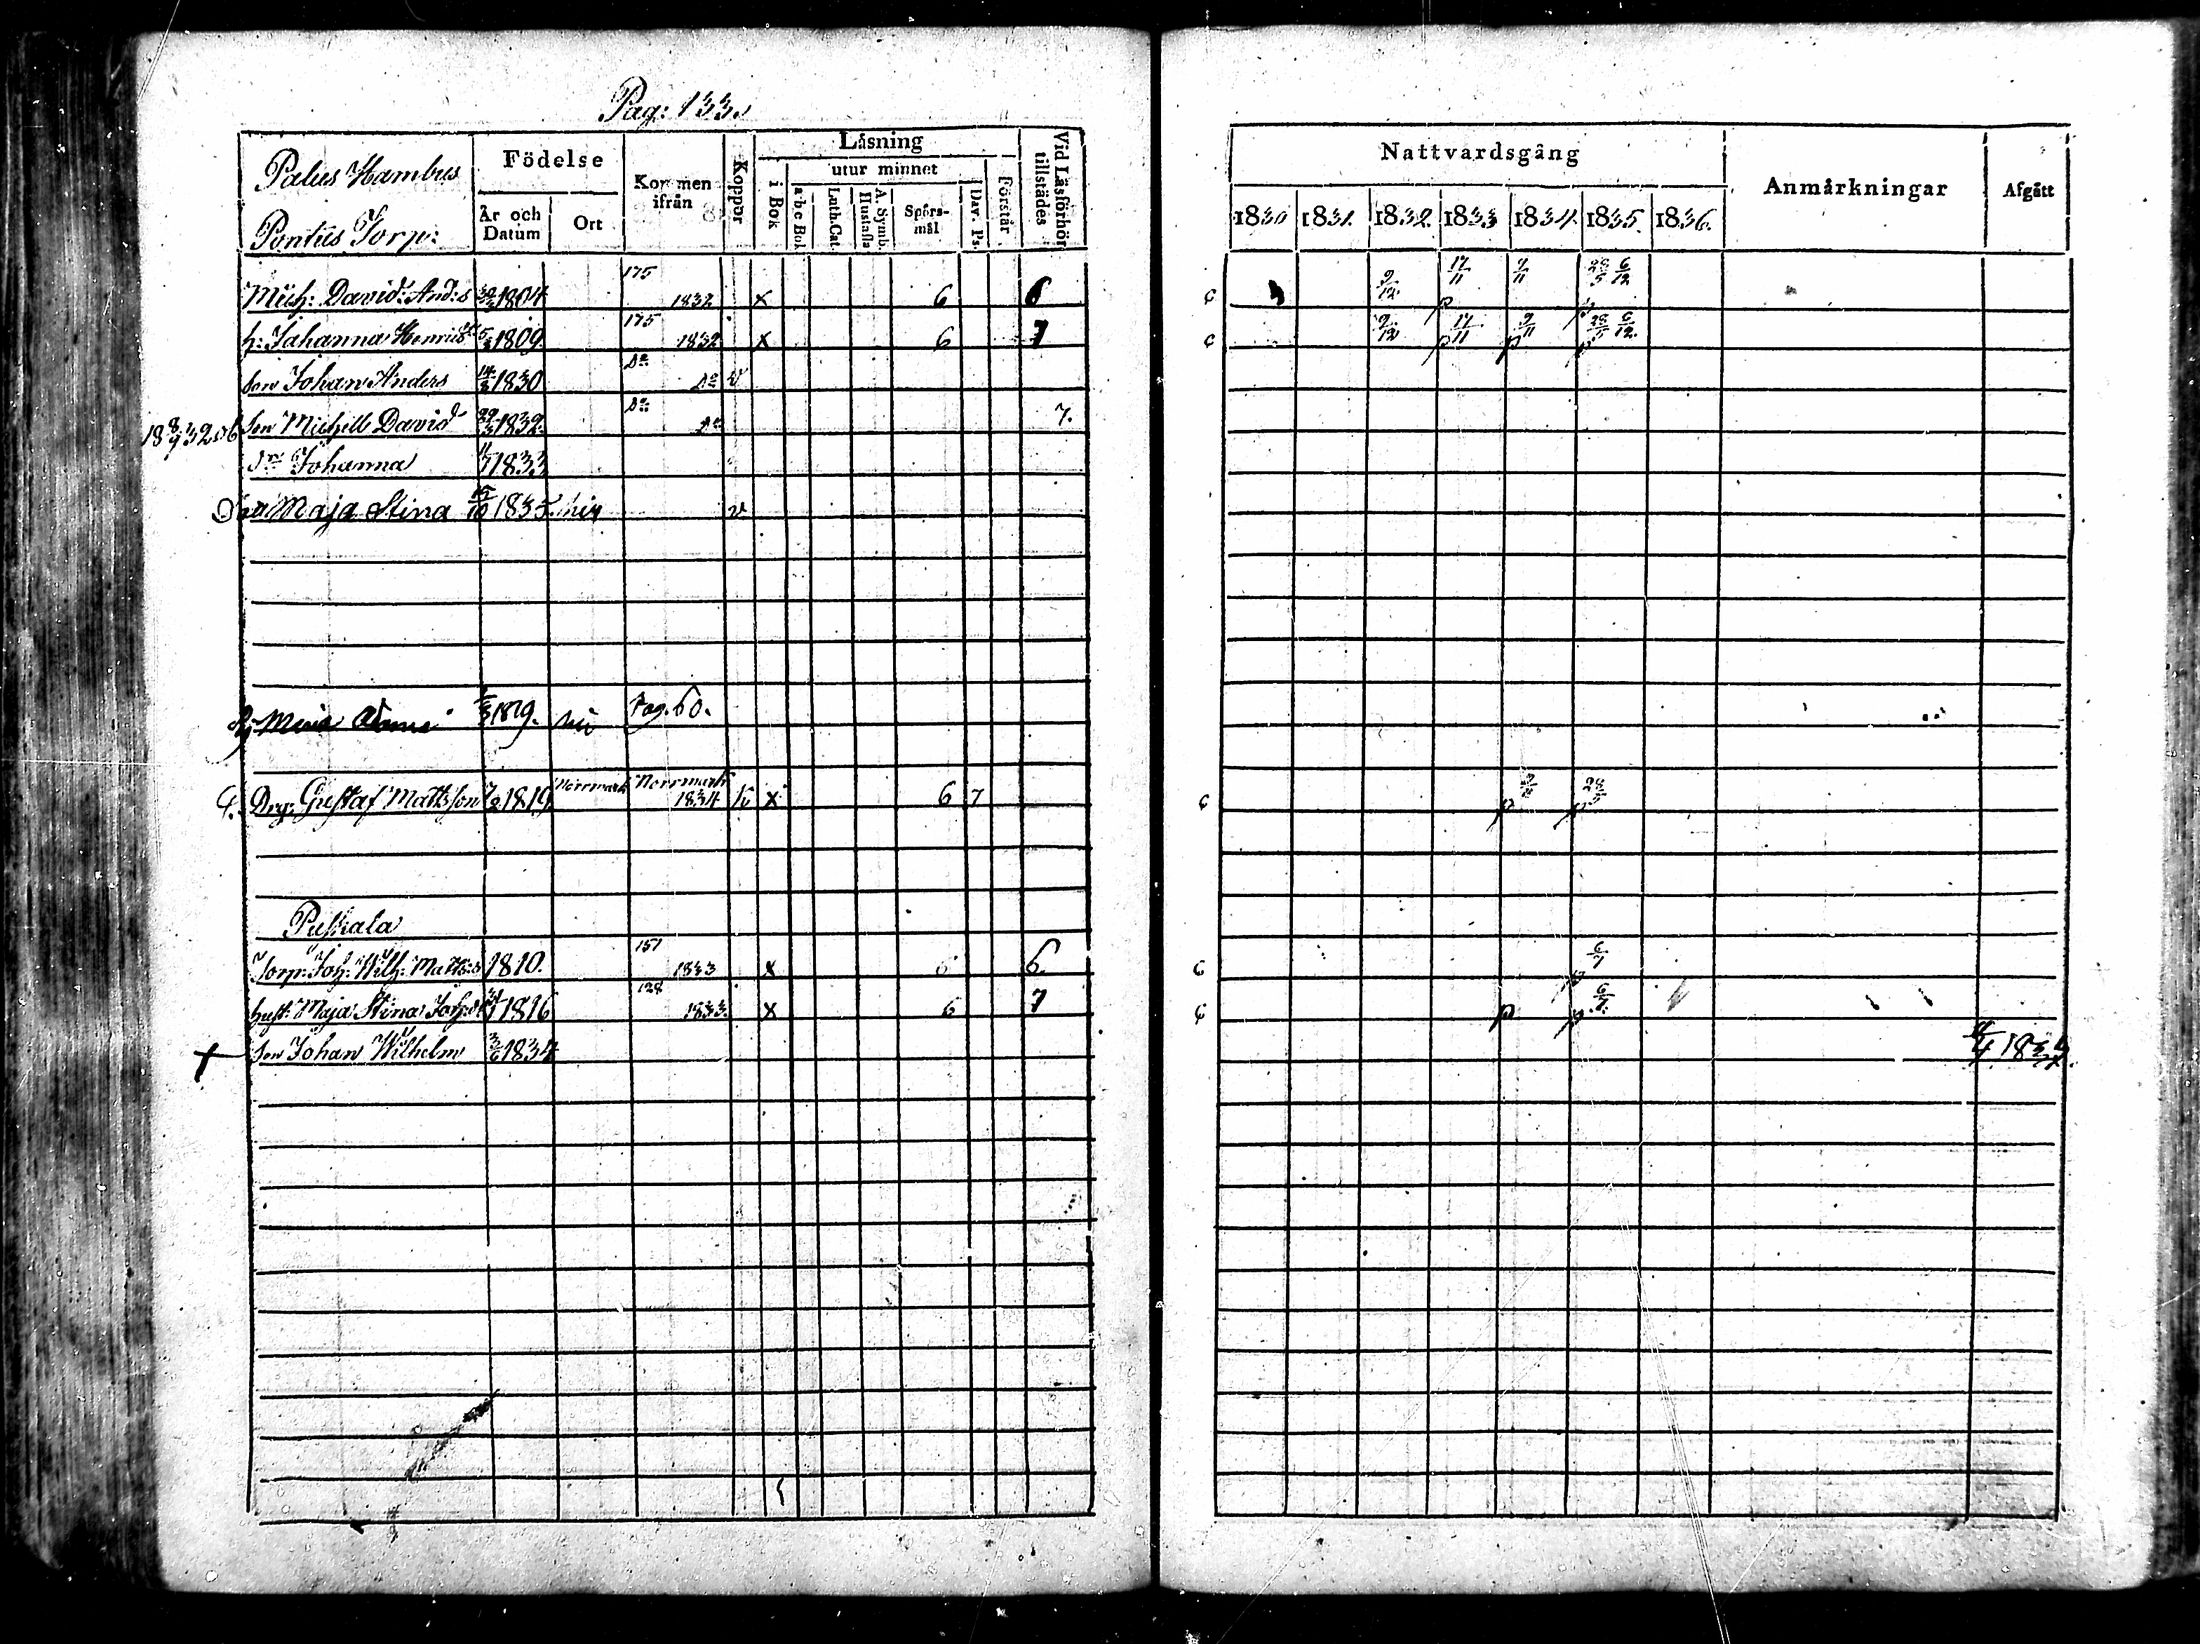 Pag: 133.
Palus Hambus
Pontus Torp:
Födelse
År och Datum
Ort
Kommen ifrån
Koppor
Läsning
utur minnet
i Bok
Luth. Cat.
A. Symb. Hustafla
Spörsmål
Dav. Ps.
Förstår
Vid Läsförhör tillstädes
Nattvardsgång
1830 1831. 1832. 1833 1834 1835. 1836.
Anmärkningar
Afgått
Mich: David: And:s 1804 175 1832 x 6 6 9/12 17/11 9/11 28/5 6/12
h: Johanna Henrics 5 1809 175 1832 x 6 7 9/12 17/11 p 9/11 p 28/5 6/12
Son Johan Anders 14/8 1830 Do Do v
Son Michell David 29/3 1832 Do Do 7.
dr Johanna 1833
Maja Stina 1835 v
Maria Pag. 60.
Drg: Gustaf Mattsson 7/2 1819 Norrmark Norrmark 1834 v x 6 7 p 9/11 p 28/5
Puskala
Torp: Joh: Wilh: Matts:s 1810. 151 1833 x 6 6 6/7
hust: Maja Stina Joh:dr 1816 128 1833 x 6 7 p p 6/7
† Son Johan Wilhelm 3/6 1834